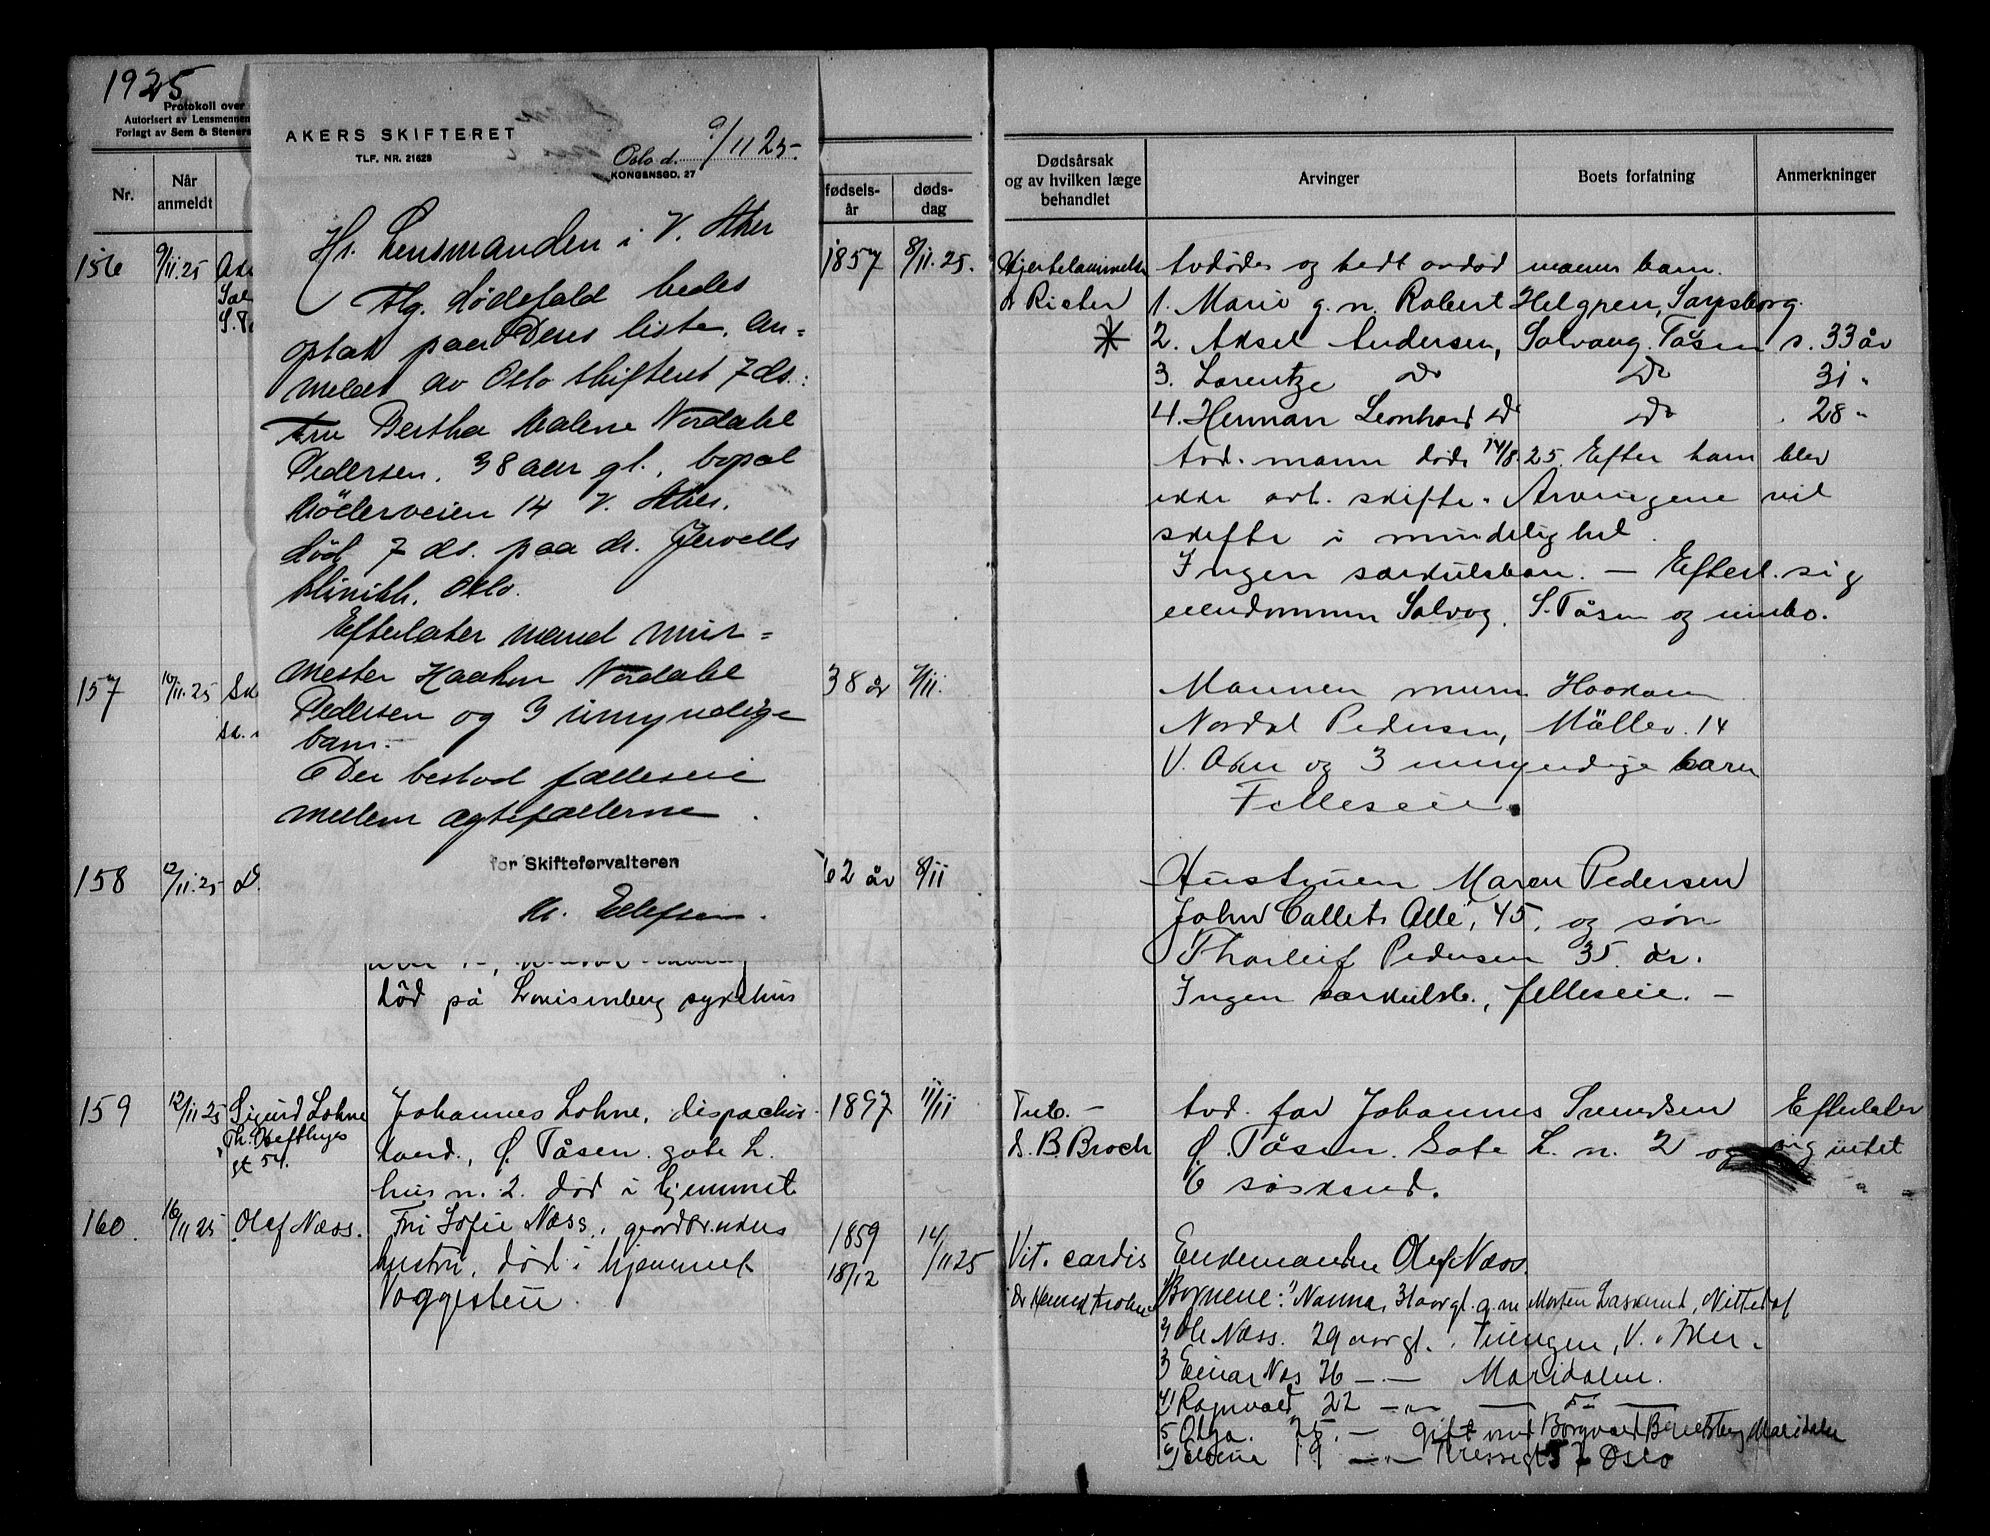 1925
Protokoll over
Autorisert av Lensmennen
Forlagt av Sem & Steners
AKERS SKIFTERET
TLF. NR. 21628
Oslo d. 9/11 25.
KONGENSGD. 27
Hr. Lensmanden i V. Aker
Flg. dødsfald bedes
optat paa Deres liste, an=
meldt av Oslo skifteret 7 ds.:
Fru Bertha Malene Nordahl
Pedersen, 38 aar gl., bopæl
14 V. Aker.
død 7 ds. paa dr. Jervells
klinikk, Oslo.
Efterlater mand mur=
mester Haakon Nordahl
Pedersen og 3 umyndige
barn.
Der bestod fælleseie
mellem ægtefællerne.
for Skifteforvalteren
Kr. Ellefsen.
Nr.
Når anmeldt
fødsels-år
døds-dag
Dødsårsak og av hvilken læge behandlet
Arvinger
Boets forfatning
Anmerkninger
156 9/11.25 1857 8/11.25. Hjertelammelse Avdødes og tidl. avdød manns barn.
dr Richter 1. Marie g.m. Robert Helgren, Sarpsborg.
2. Aksel Andersen, Solvang. Tåsen s. 33 år
3. Lorentze Do Do 31 "
4. Herman Leonhard Do Do 28 "
Avd. mann døde 14/8.25. Efter ham blev
ikke avh. skifte. Arvingene vil
skifte i mindelighet.
Ingen særkulsbarn. — Efterl. sig
eiendommen Solvog, S. Tåsen og innbo.
157 10/11.25 38 år 7/11. Mannen murm. Haakon
Nordal Pedersen, Møllev. 14
V. Aker og 3 umyndige barn
Felleseie.
158 12/11.25 D. 62 år 8/11 Hustruen Maren Pedersen
John Collets Alle, 45, og søn
Thorleif Pedersen 35 år.
død på Lovisenberg sykehus Ingen særkulsb., felleseie. —
159 12/11 25 Sigurd Lohne Johannes Lohne, dispachør- 1897 11/11 Tub. — Avd. far Johannes Svendsen Efterlater
Th. Hefthyes kand., Ø. Tåsen gate L. dr. B. Broch Ø. Tåsen Gate L. n. 2 og sig intet
gt 54. hus n. 2. død i hjemmet 6 søskend.
160. 16/11 25 Olef Næss. Fru Sofie Næss, gaardbrukers 1859 14/11 25
hustru, død i hjemmet 18/12 Vit. cordis Enkemanden Olef Næss.
Voggestein. Børnene: 1) Nanna, 31 aar gl. g.m. Morten Laskerud, Nittedal
2) Ole Næss. 29 aar gl. Tuengen, V. Aker.
3 Einar Næs 26 — — Maridalen.
4) Ragnvald 22 — " — — Do —
5 Olga. 25. — gift med Borgvald Maridalen
6) 19 — " — 57 Oslo